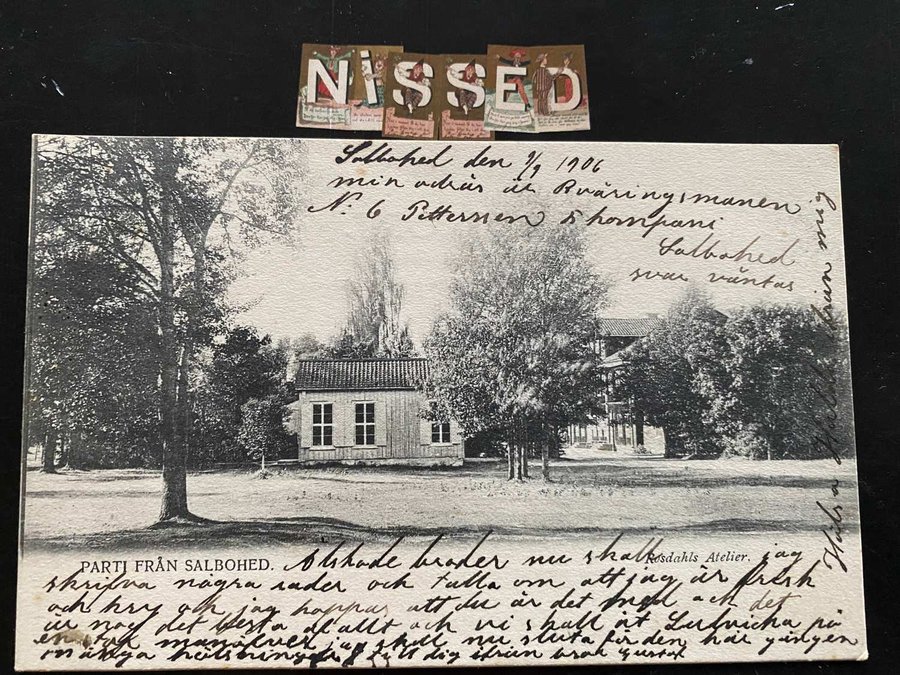 NiSSED
Salbohed den 9/9 1906
min adräs är Bväringsmanen
No 6 Pettersen 5 kompani
Salbohed
svar väntas
Hälsa Hilld från mig
PARTI FRÅN SALBOHED.
Rosdahls Atelier.
Älskade broder nu skall jag
skrifva några rader och talla om att jag är frisk
och kry og jag hoppas att du är det med och det
är nog det besta af allt och vi skall åt Ludvicka på
manöver skall nu sluta för den här gången
många hälsningar till dig ifrån bror Gustaf